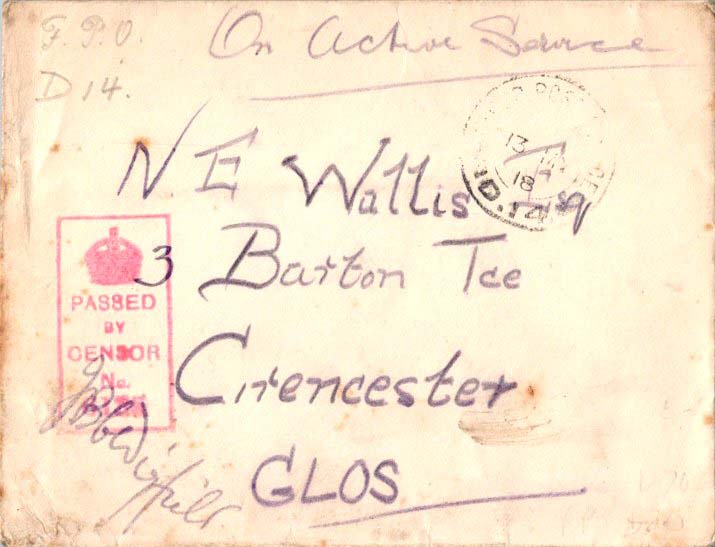 F. P. O.
D 14.
On Active Service
13
18
D.14
N E Wallis Esq
3 Barton Tce
Cirencester
GLOS
PASSED
BY
CENSOR
No.